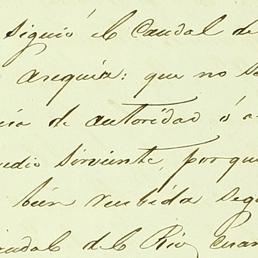 siguió el Caudal de
arequia: que no se
de autoridad ó a
sirviente, por que
bien recibida seg
del Rio, cuan